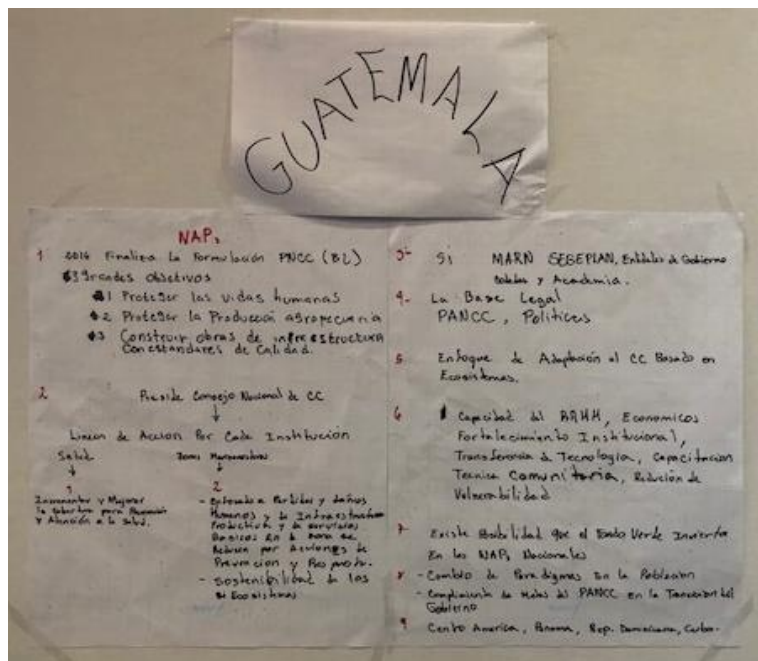 GUATEMALA
NAPs
1 2016 Finaliza La Formulación PNCC (BL)
3 Grandes objetivos
1 Proteger las vidas humanas
2 Proteger la Producción agropecuaria
3 Construir obras de infraestructura
Con estandares de Calidad.
2 Preside Consejo Nacional de CC
Lineas de Accion Por Cada Institución
Salud
1
Incrementar y Mejorar
la cobertura para
y Atención a la Salud.
2
- Enfocado a Perdidas y daños
Humanos y de Infraestructura
Productiva y de servicios
Basicos En la
por Acciones de
Prevención y
- Sostenibilidad de los
Ecosistemas
3- Si MARN SEGEPLAN, Entidades de Gobierno
y Academia.
4- La Base Legal
PANCC, Politicas
5 Enfoque de Adaptación al CC Basado en
Ecosistemas.
6 Capacidad del RRHH, Economicos
Fortalecimiento Institucional,
Transferencia de Tecnología, Capacitacion
Tecnica Comunitaria, Reducción de
Vulnerabilidad
7 Existe Posibilidad que el Fondo Verde Invierta
En los NAPs Nacionales
8 - Cambio de Paradigmas En la Poblacion
- Cumplimiento de Metas del PANCC en la del
Gobierno
9 Centro America, Panama, Rep. Dominicana, Cuba.